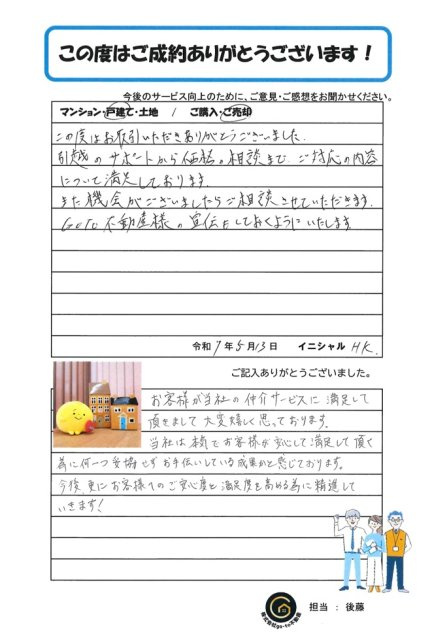 この度はご成約ありがとうございます！
今後のサービス向上のために、ご意見・ご感想をお聞かせください。
マンション・戸建て・土地　/　ご購入・ご売却
この度はお取引いただきありがとうございました。
引越のサポートから価格の相談まで、ご対応の内容
について満足しております。
また機会がございましたらご相談させていただきます。
GoTo不動産様の宣伝もしておくようにいたします。
令和 7 年 5 月 13 日　イニシャル　H.K.
ご記入ありがとうございました。
お客様が当社の仲介サービスに満足して
頂きまして大変嬉しく思っております。
当社は本気でお客様が安心して満足して頂く
為に何一つ妥協せずお手伝いしている成果かと感じております。
今後更にお客様へのご安心度と満足度を高める為に精進して
いきます！
株式会社go-to不動産
担当 : 後藤